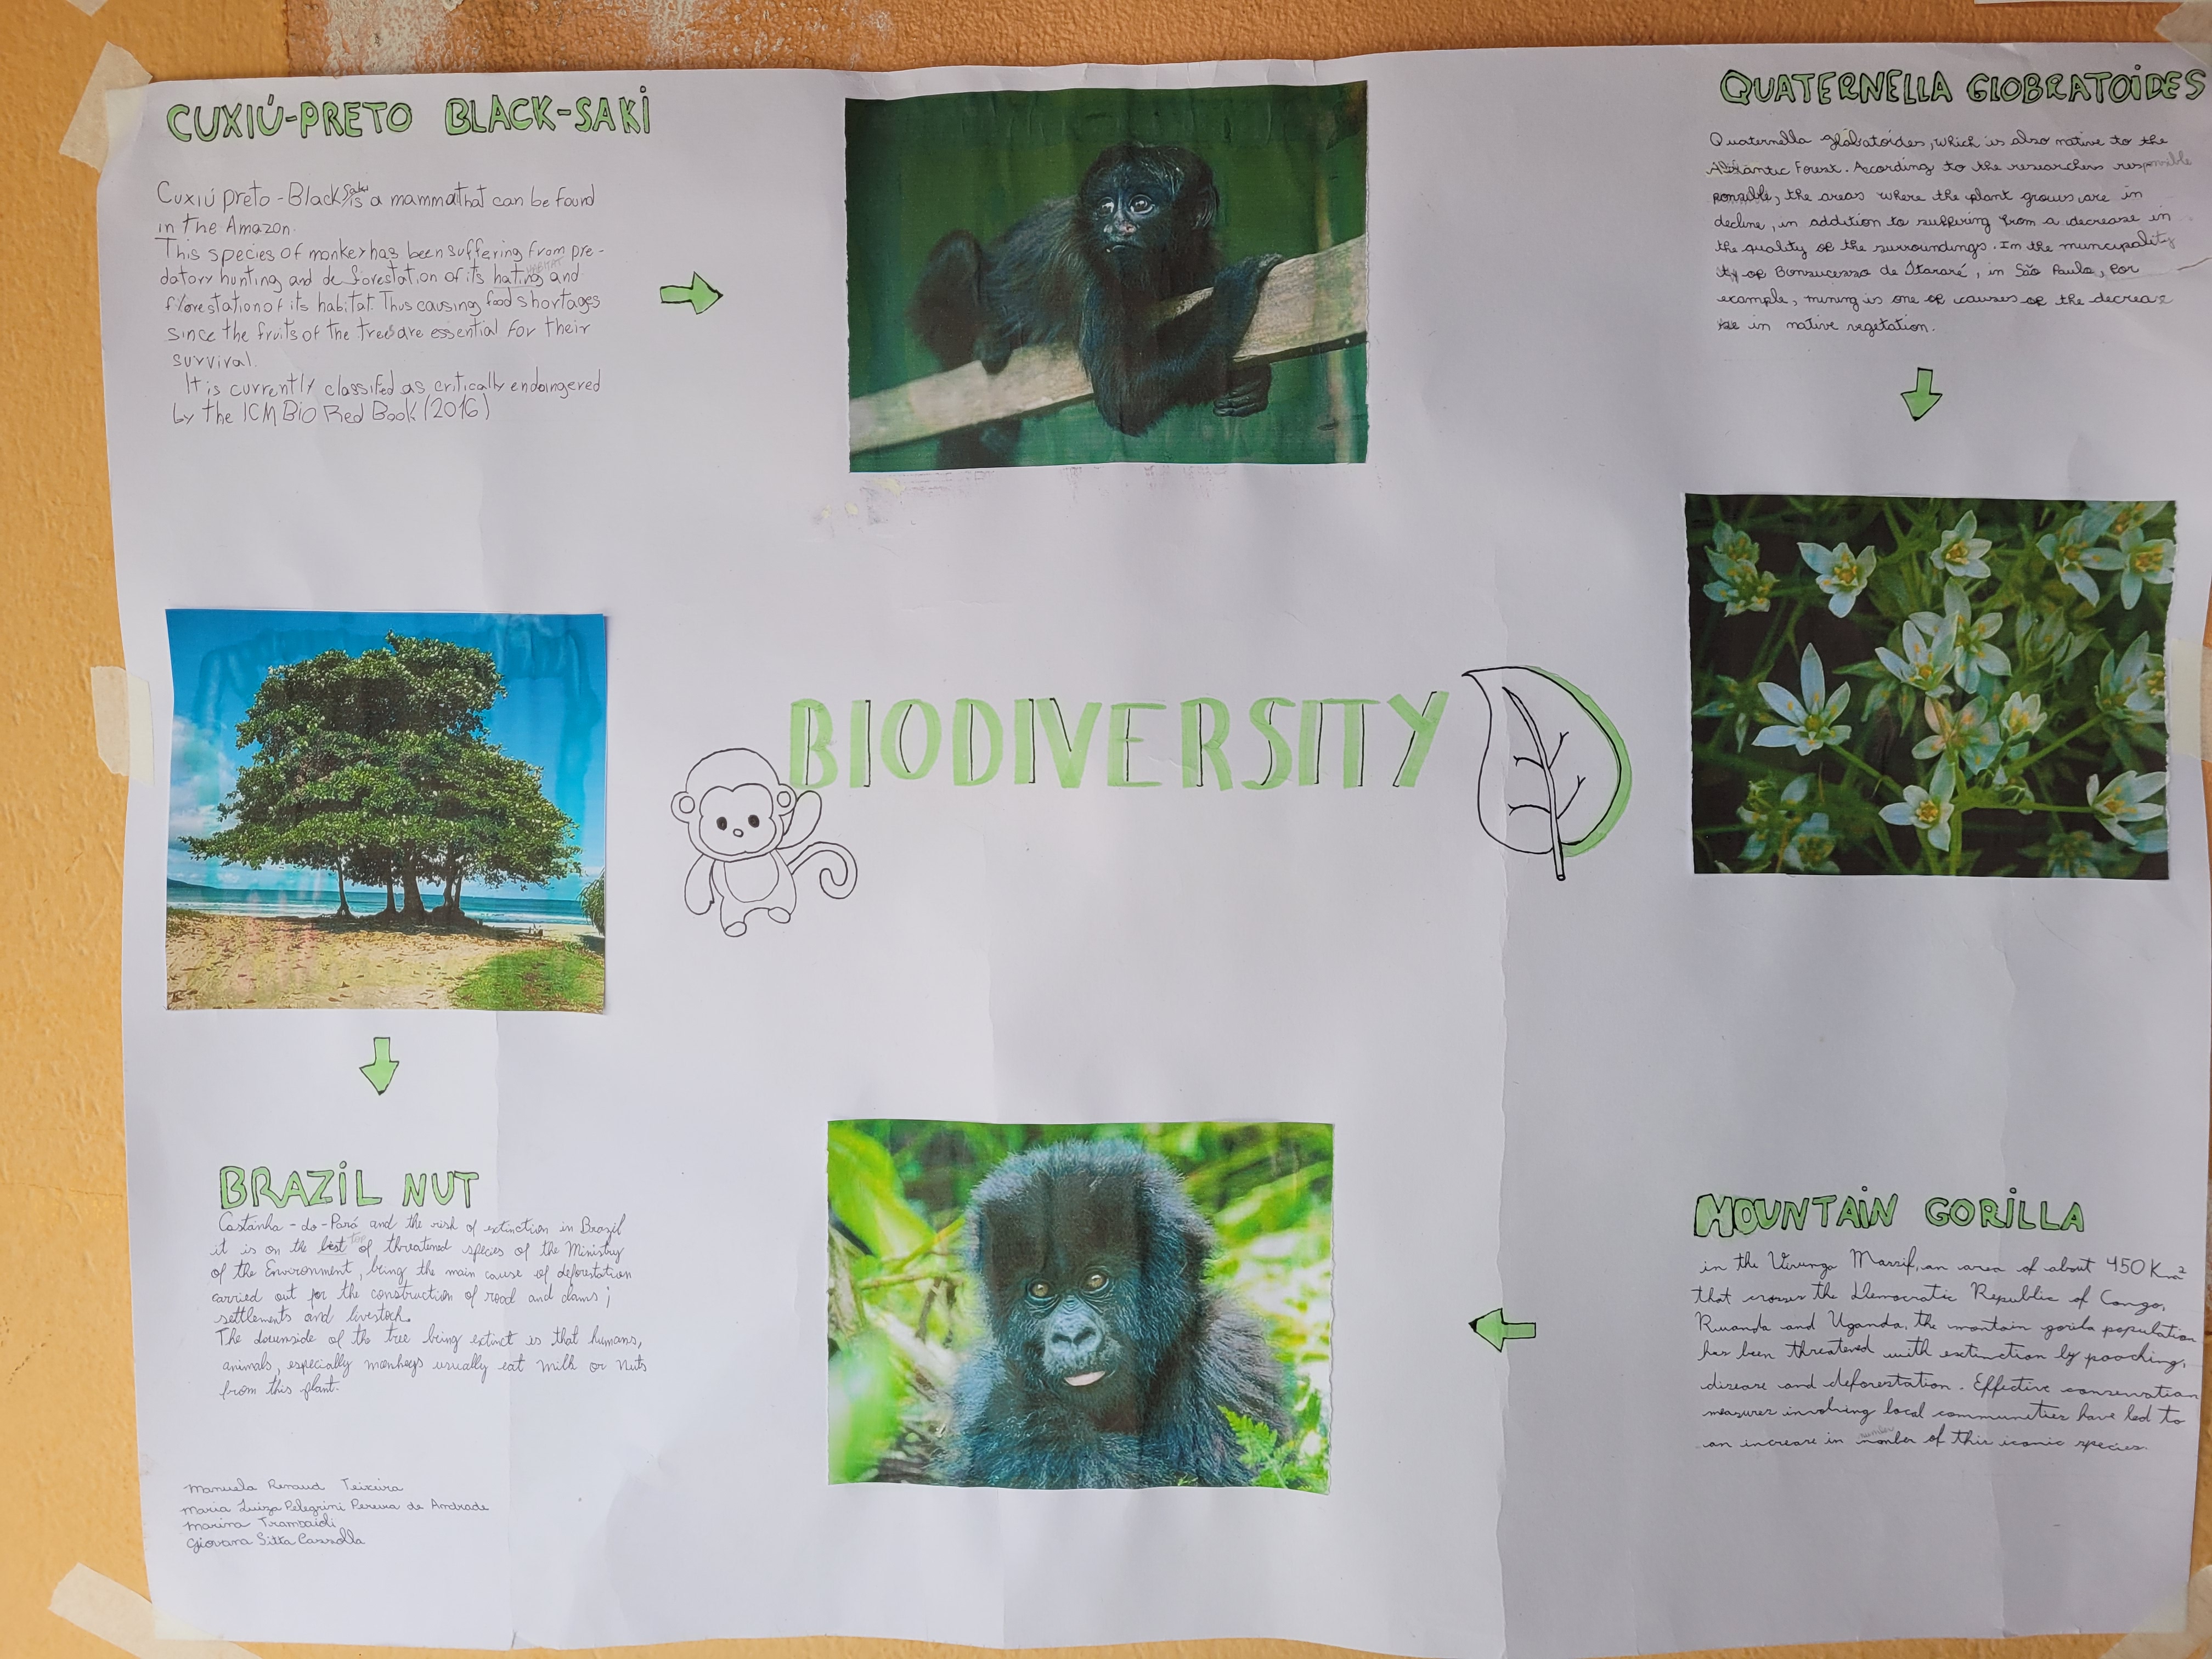 CUXIÚ-PRETO BLACK-SAKI
Cuxiú preto - Black Saki is a mammal that can be found
in the Amazon.
This species of monkey has been suffering from pre-
datory hunting and de forestation of its hating and
HABITAT
florestation of its habitat. Thus causing food shortages
since the fruits of the trees are essential for their
survival.
It is currently classifed as critically endangered
by the ICM Bio Red Book (2016)
QUATERNELLA GLOBRATOIDES
Quaternella glabatoides, which is also native to the
Atlantic Forest. Acording to the researchers responsible
ponsible, the areas where the plant grows are in
decline, in addition to suffering from a decrease in
the quality of the surroundings. Im the muncipality
ty of Bonsucesso de Itararé, in São Paulo, for
example, mining is one of causes of the decrease
se in native vegetation.
BIODIVERSITY
BRAZIL NUT
Castanha - do - Pará and the risk of extinction in Brazil
it is on the best of threatened species of the Ministry
of the Environment, being the main cause of deforestation
carried out for the construction of road and dams;
settlements and livestock.
The downside of the tree being extinct is that humans,
animals, especially monkeys usually eat milk or nuts
from this plant.
MOUNTAIN GORILLA
in the Virunga Massif, an area of about 450 Km²
that crosses the Democratic Republic of Congo,
Rwanda and Uganda, the montain gorila population
has been threatened with extinction by poaching,
disease and deforestation. Effective conservation
measures involving local communities have led to
an increase in nomber of this iconic species.
number
Manuela Renaud Teixeira
Maria Luiza Pelegrini Pereira de Andrade
Marina Trambaioli
Giovana Sitta Cassolla